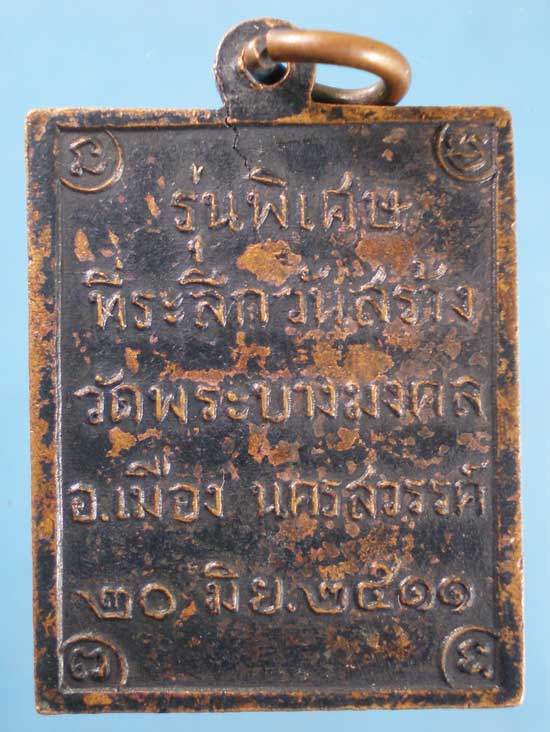 รุ่นพิเศษ
ที่ระลึกวันสร้าง
วัดพระบางมงคล
อ.เมือง นครสวรรค์
๒๐ มิย.๒๕๑๑